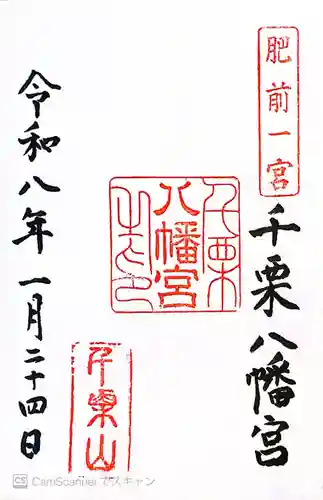 肥前一宮
千栗八幡宮
千栗
八幡宮
之印
千栗山
令和八年一月二十四日
CS CamScanner でスキャン